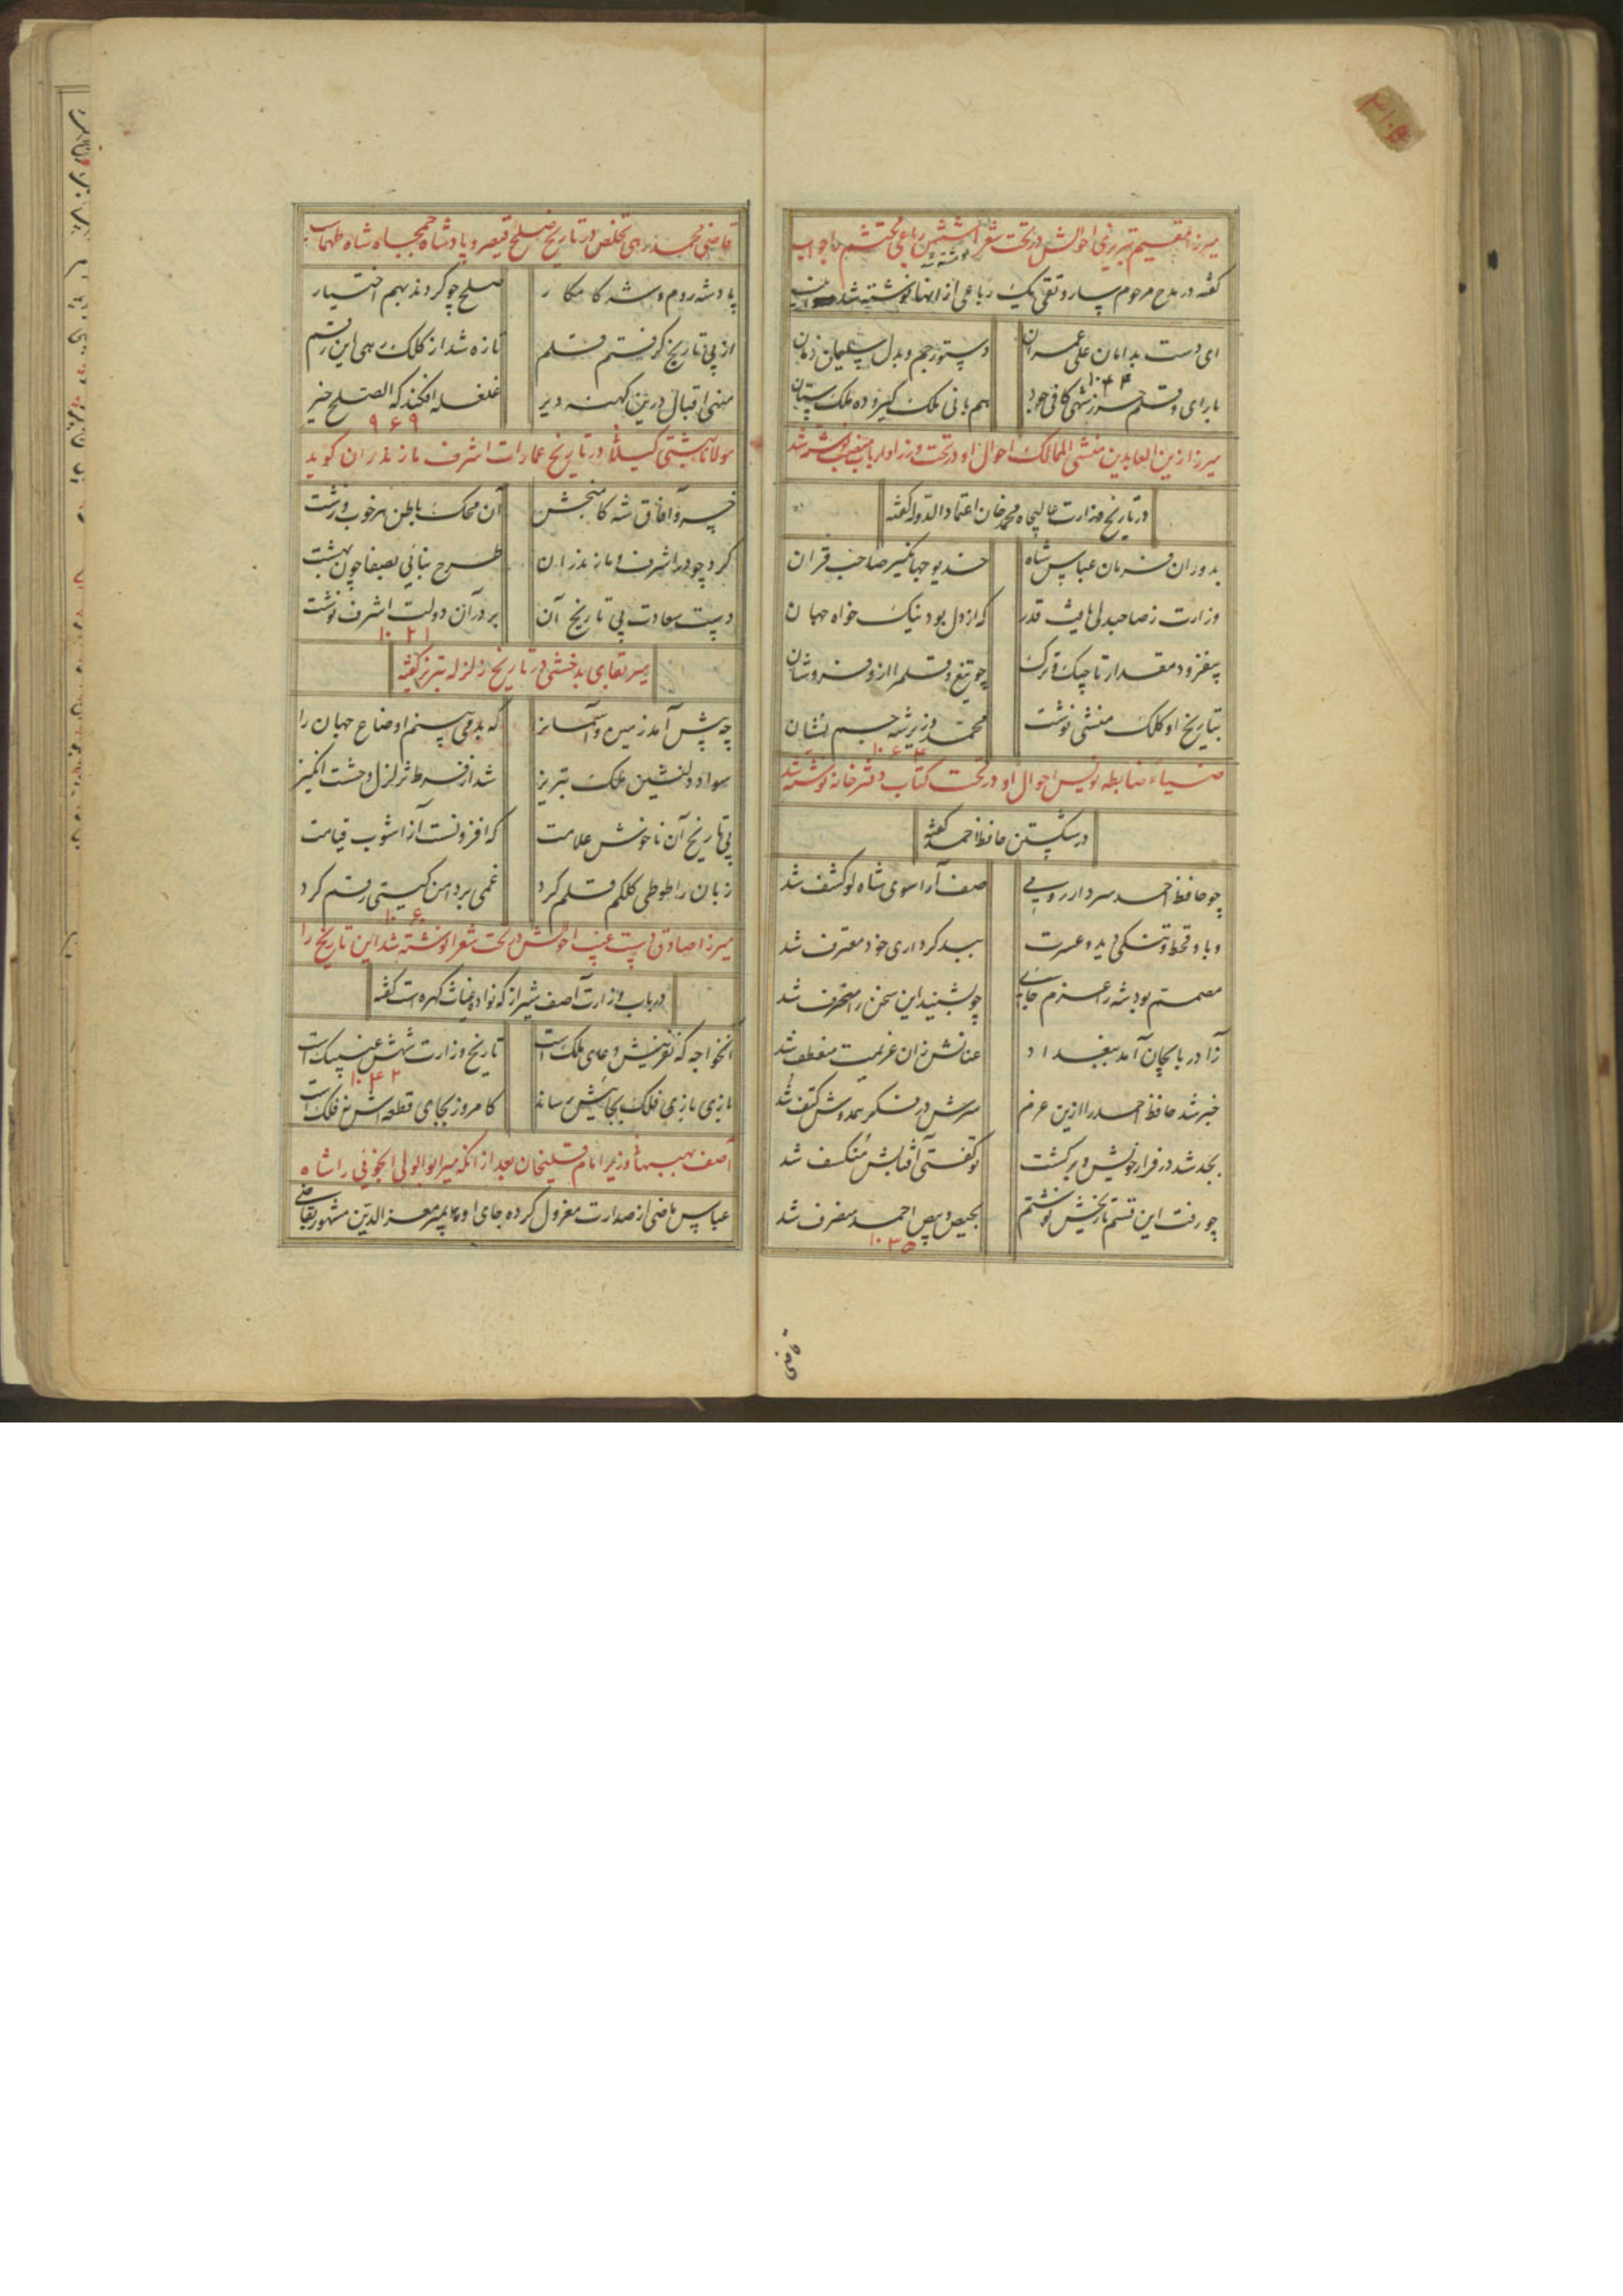 میرزا مقیم تبریزی احوالش در تحت شعرا نوشته شد شش رباعی محتشم را جواب
گفته در مدح مرحوم ساروتقی یک رباعی از انها نوشته شد
ای دست بدامان علی عمران دستور جم و بدل سلیمان زمان
۱۰۴۴
بارای و قلم شهی کافی جود هم بانی ملک گیر و ده ملک ستان
میرزا زین العابدین منشی الممالک احوال او در تحت وزرا و ارباب منصب نوشته شد
در تاریخ وزارت عالیجاه محمد خان اعتماد الدوله گفته
بدوران فرمان عباس شاه خدیو جهانگیر صاحب قران
وزارت ز صاحبدلی یافت قدر که از دل بود نیک خواه جهان
بیفزود مقدار تاجیک و ترک چو تیغ و قلم را ازو فر و شان
بتاریخ او کلک منشی نوشت محمد وزیر شه جم نشان
۱۰۶۴
ضیاء ضابطه نویس احوال او در تحت کتاب دفترخانه نوشته شد
در شکستن حافظ احمد گفته
چو حافظ احمد سردار رومی صف آرا سوی شاه لوکشف شد
وبا و قحط و تنگی دید و عسرت ببد کرداری خود معترف شد
مصمم بود شه را عزم جائی چو بشنید این سخن را منحرف شد
ز آذربایجان آمد ببغداد عنانش زان عزیمت منعطف شد
خبر شد حافظ احمد را ازین عزم سرش در فکر همدوش کتف شد
بجد شد در فرار خویش و برگشت تو گفتی آفتابش منکسف شد
چو رفت این قسم تاریخش نوشتم بحیص و بیص احمد منصرف شد
۱۰۳۵
قاضی
قاضی محمد رهی تخلص در تاریخ صلح قیصر و پادشاه جمجاه شاه طهماسب
پادشه روم و شه کامکار صلح چو کردند بهم اختیار
از پی تاریخ گرفتم قلم تازه شد از کلک رهی این رقم
منهی اقبال درین کهنه دیر غلغله افکند که الصلح خیر
۹۶۹
مولانا بهشتی گیلانی در تاریخ عمارات اشرف مازندران گوید
خسرو آفاق شه کامبخش آن محک باطن هر خوب و زشت
کرد چو در اشرف مازندران طرح بنائی بصفا چون بهشت
دست سعادت پی تاریخ آن بر در آن دولت اشرف نوشت
۱۰۲۱
میر بقای بدخشی در تاریخ زلزله تبریز گفته
چه پیش آمد زمین و آسمانرا که بد می بینم اوضاع جهان را
سواد دلنشین ملک تبریز شد از فرط تزلزل وحشت انگیز
پی تاریخ آن ناخوش علامت که افزونست از آشوب قیامت
زبان را طوطی کلکم قلم کرد غمی بر دامن گیتی رقم کرد
۱۰۶۰
میرزا صادق دست غیب احوالش در تحت شعرا نوشته شد این تاریخ را
در باب وزارت آصف شیراز که نواده غیاث کهره است گفته
آنخواجه که نفرینش دعای ملک است تاریخ وزارت شهش غیبک است
۱۰۴۲
بازی بازی فلک بجائیش رساند کامروز بجای قطعه اش نه فلک است
آصف بهبهانی وزیر امام قلیخان بعد از انکه میر ابوالولی انجوئی را شاه
عباس ماضی از صدارت معزول کرده جای او به پسر معزالدین مشهور بقاضی